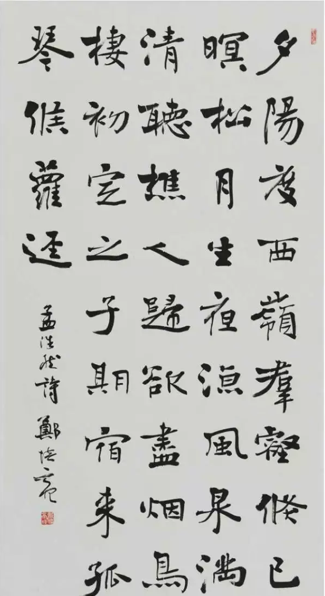 夕陽度西嶺羣壑倏已
暝松月生夜涼風泉滿
清聽樵人歸欲盡烟鳥
棲初定之子期宿来孤
琴候蘿逕
孟浩然詩 鄭